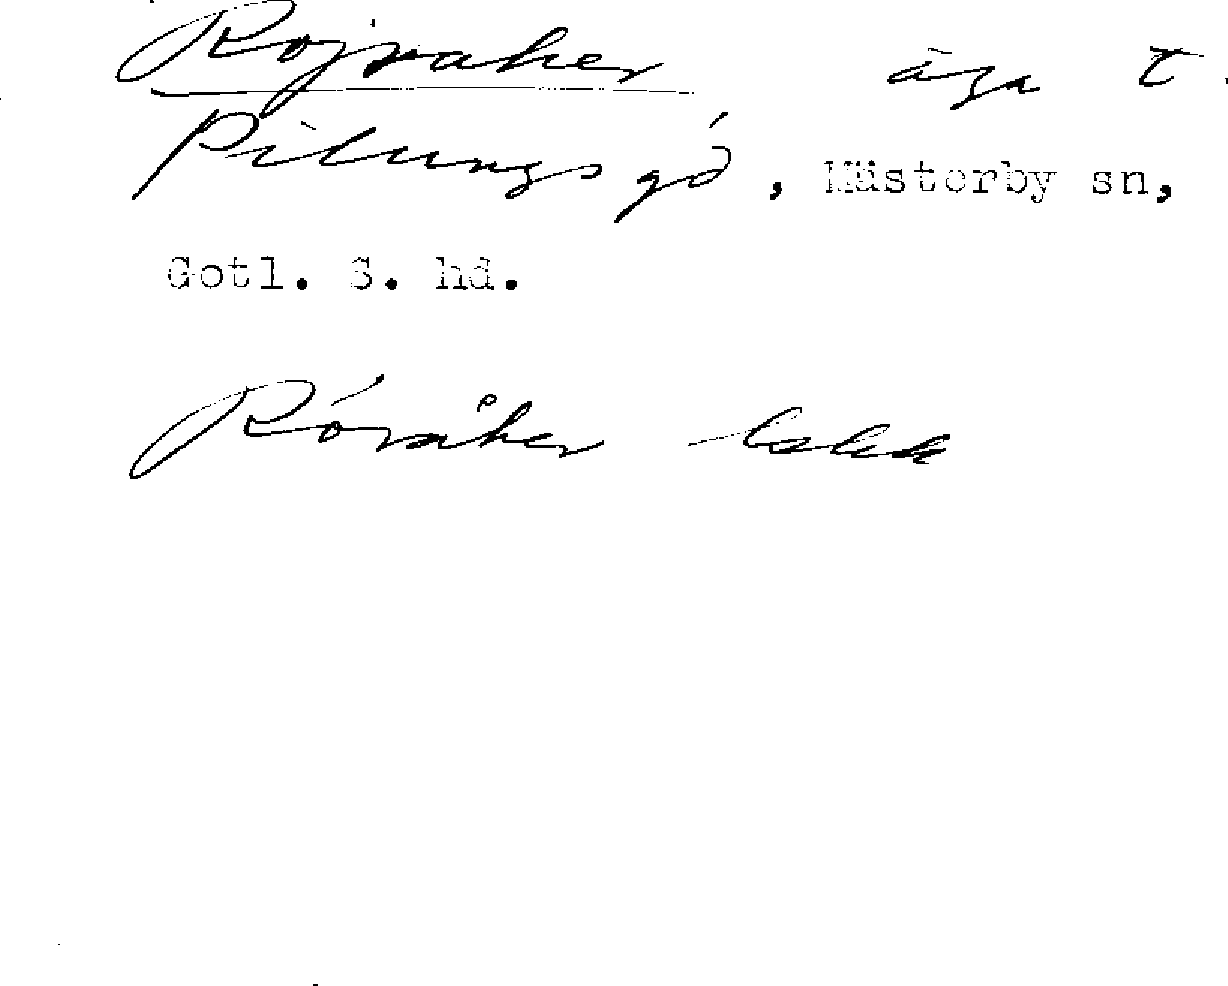 Rojraker äga t.
Pilungs gd, Mästerby sn,
Gotl. S. hd.
Röråker